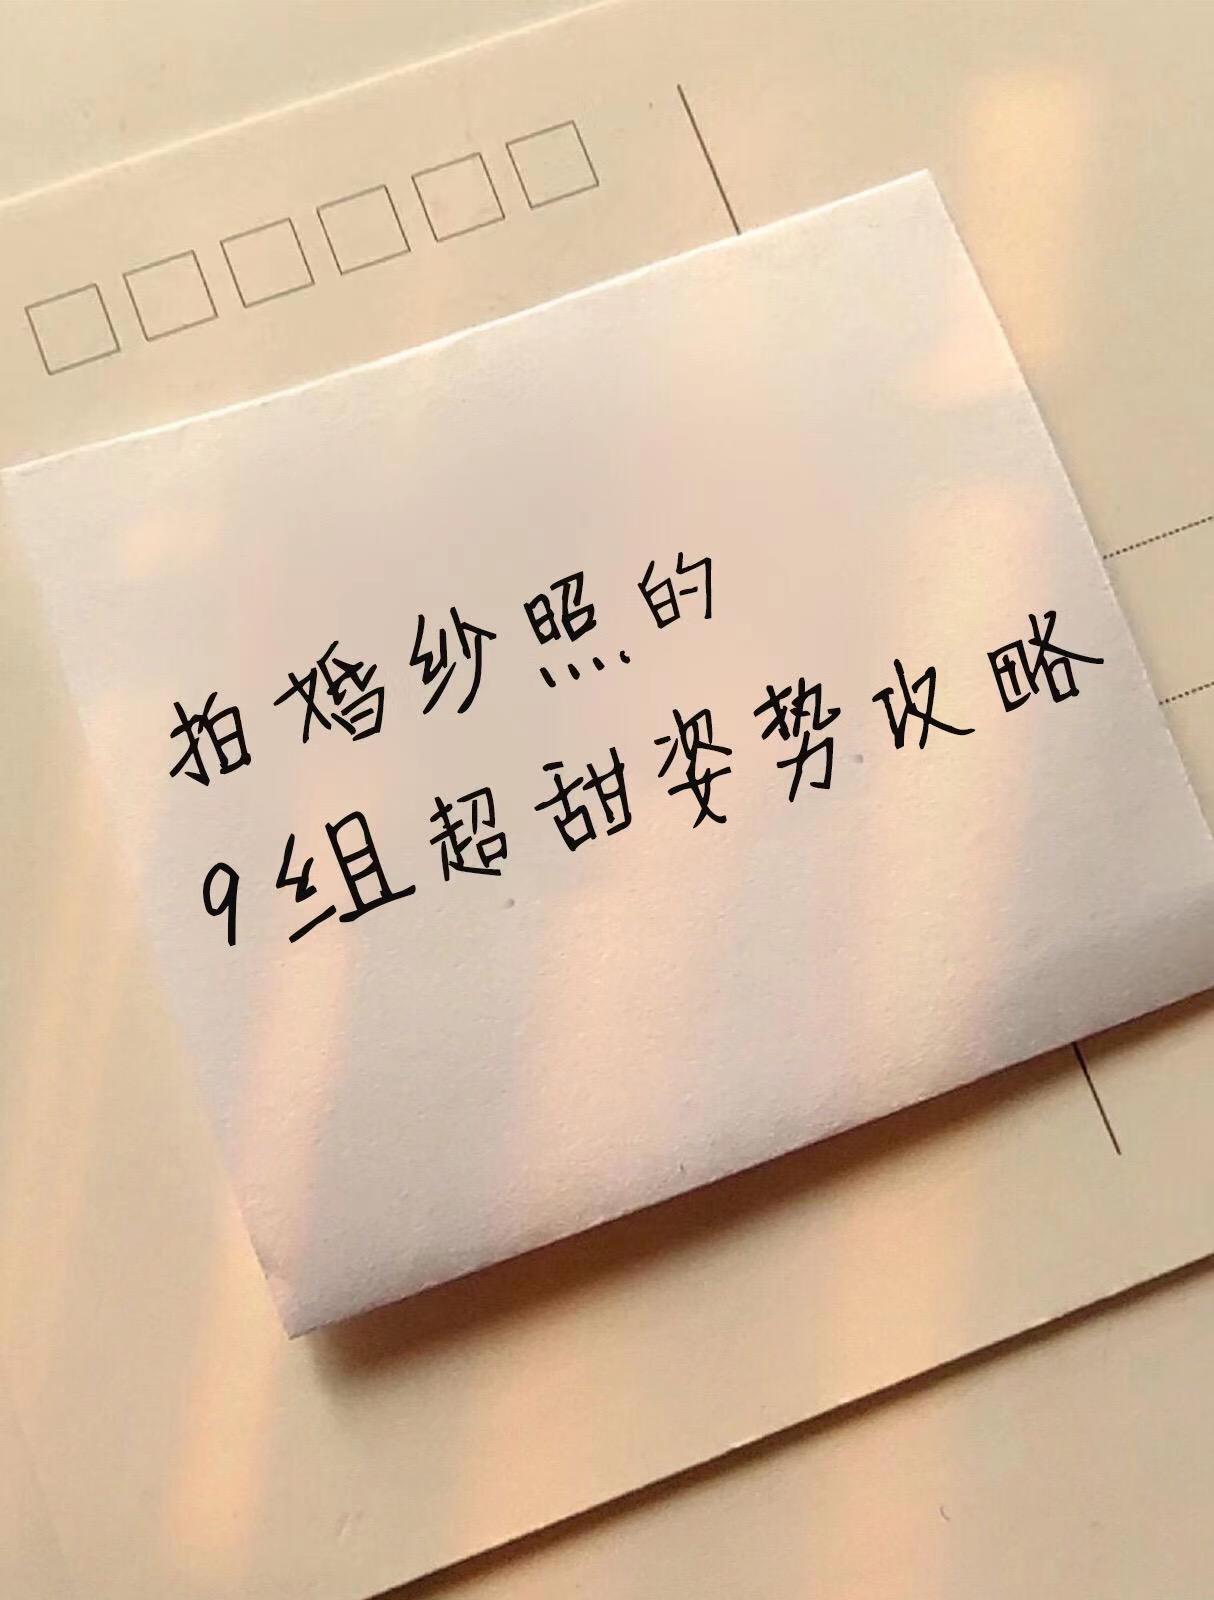 拍婚纱照的
9组超甜姿势攻略